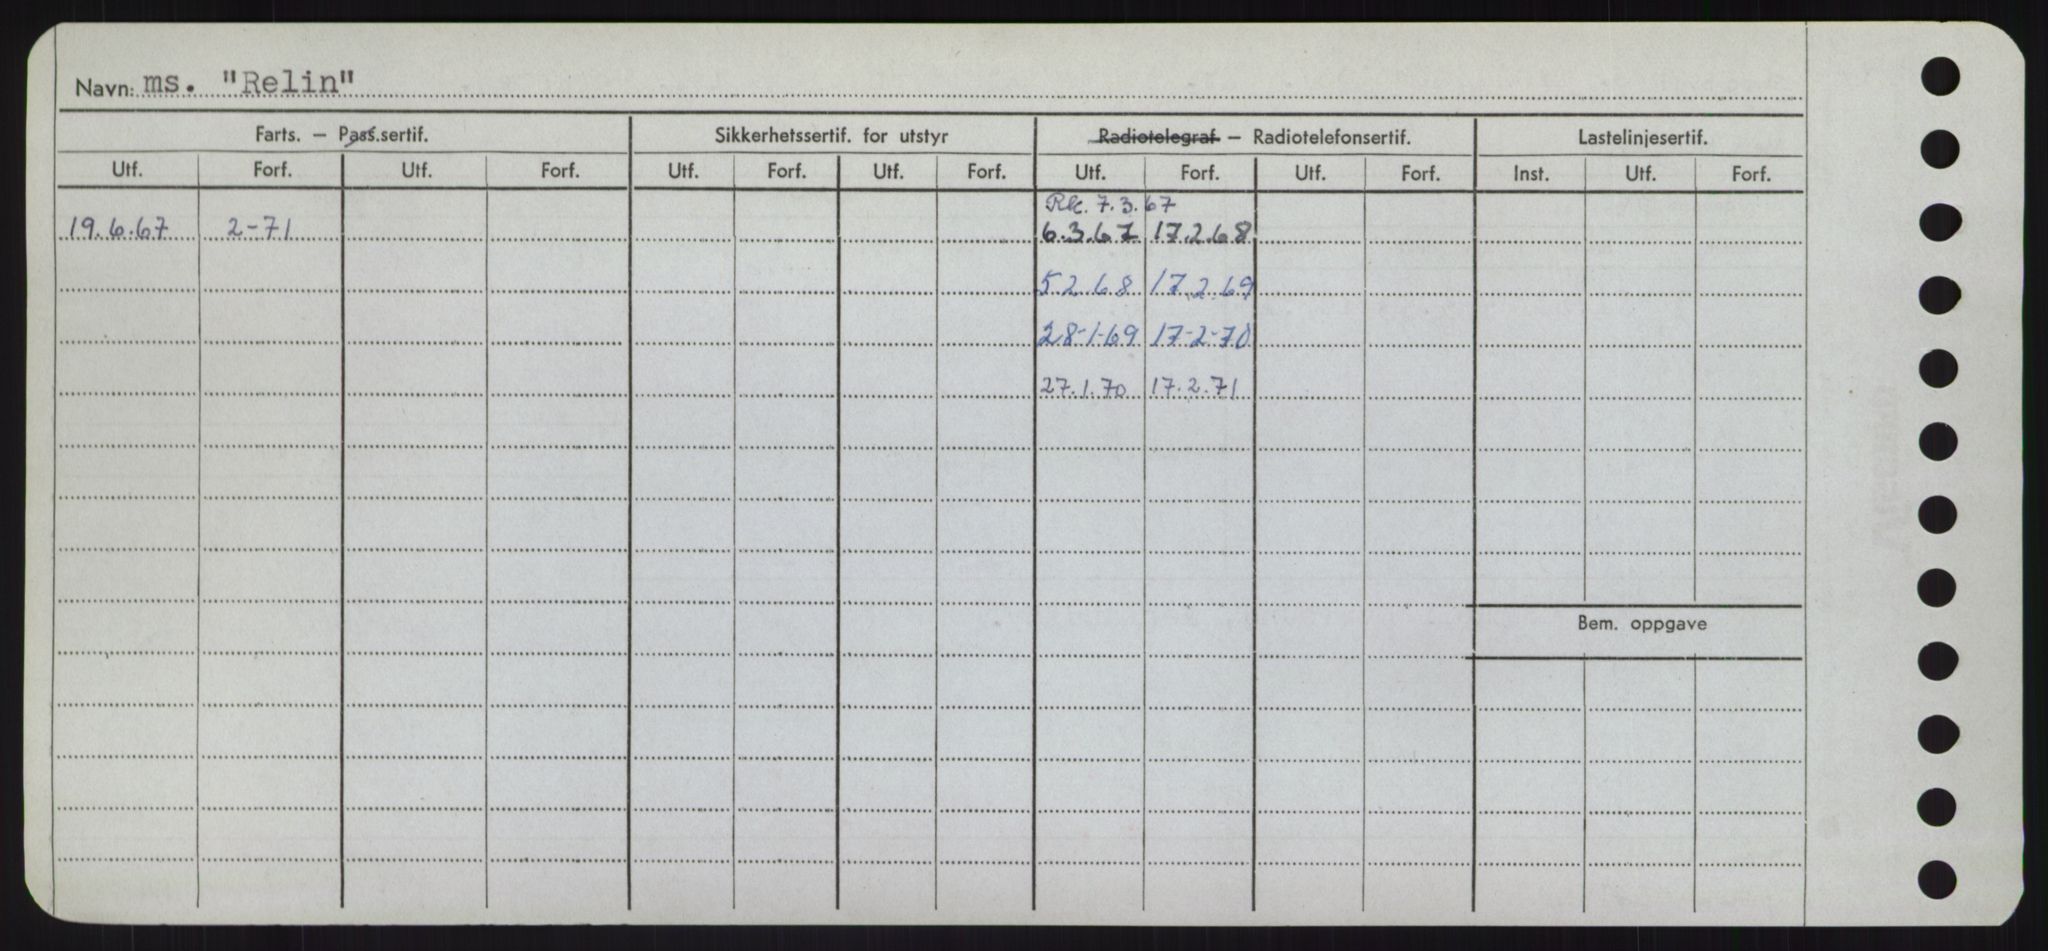 Navn: ms. "Relin"
Farts. — Pass.sertif. Sikkerhetssertif. for utstyr Radiotelegraf — Radiotelefonsertif. Lastelinjesertif.
Utf. Forf. Utf. Forf. Utf. Forf. Utf. Forf. Utf. Forf. Utf. Forf. Inst. Utf. Forf.
Rk. 7.3.67
19.6.67 2-71 6.3.67 17.2.68
5 2 68 17 2 69
28-1-69 17-2-70
27.1.70 17.2.71
Bem. oppgave